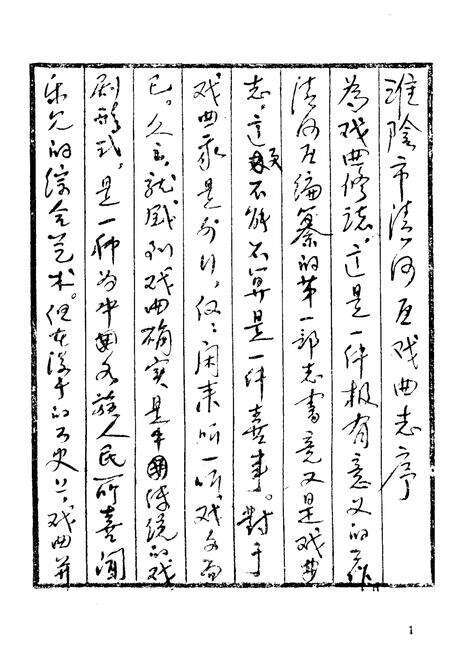 淮阴市清河区戏曲志序
为戏曲修志。这是一件极有意义的工作
清河区编纂的第一部志书竟又是戏曲
志。这不能不算是一件喜事。对于
戏曲我是外行，仅仅闲来听一听戏而
已。久之就感到戏曲确实是中国传统的戏
剧形式，是一种为中国各族人民所喜闻
乐见的综合艺术。但在漫长的历史上，戏曲并
1